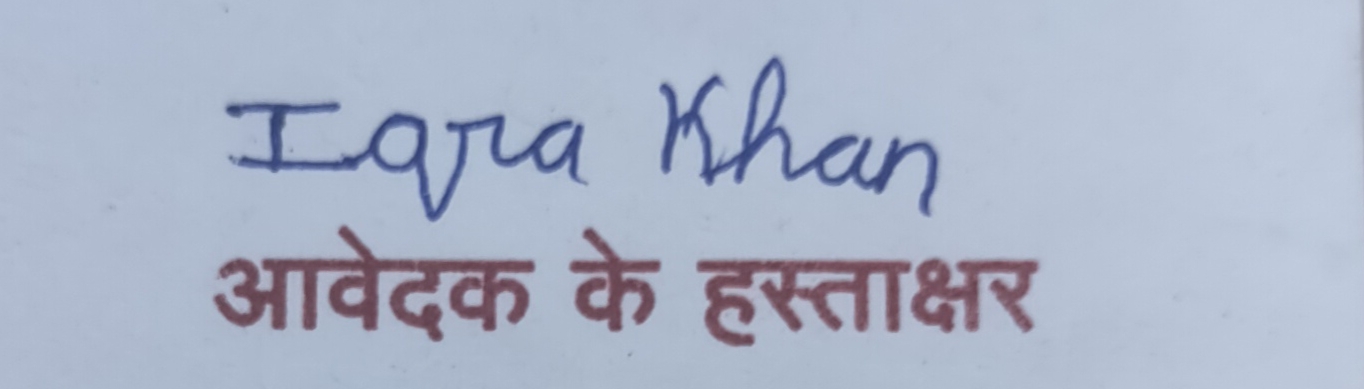 Iqra Khan
आवेदक के हस्ताक्षर